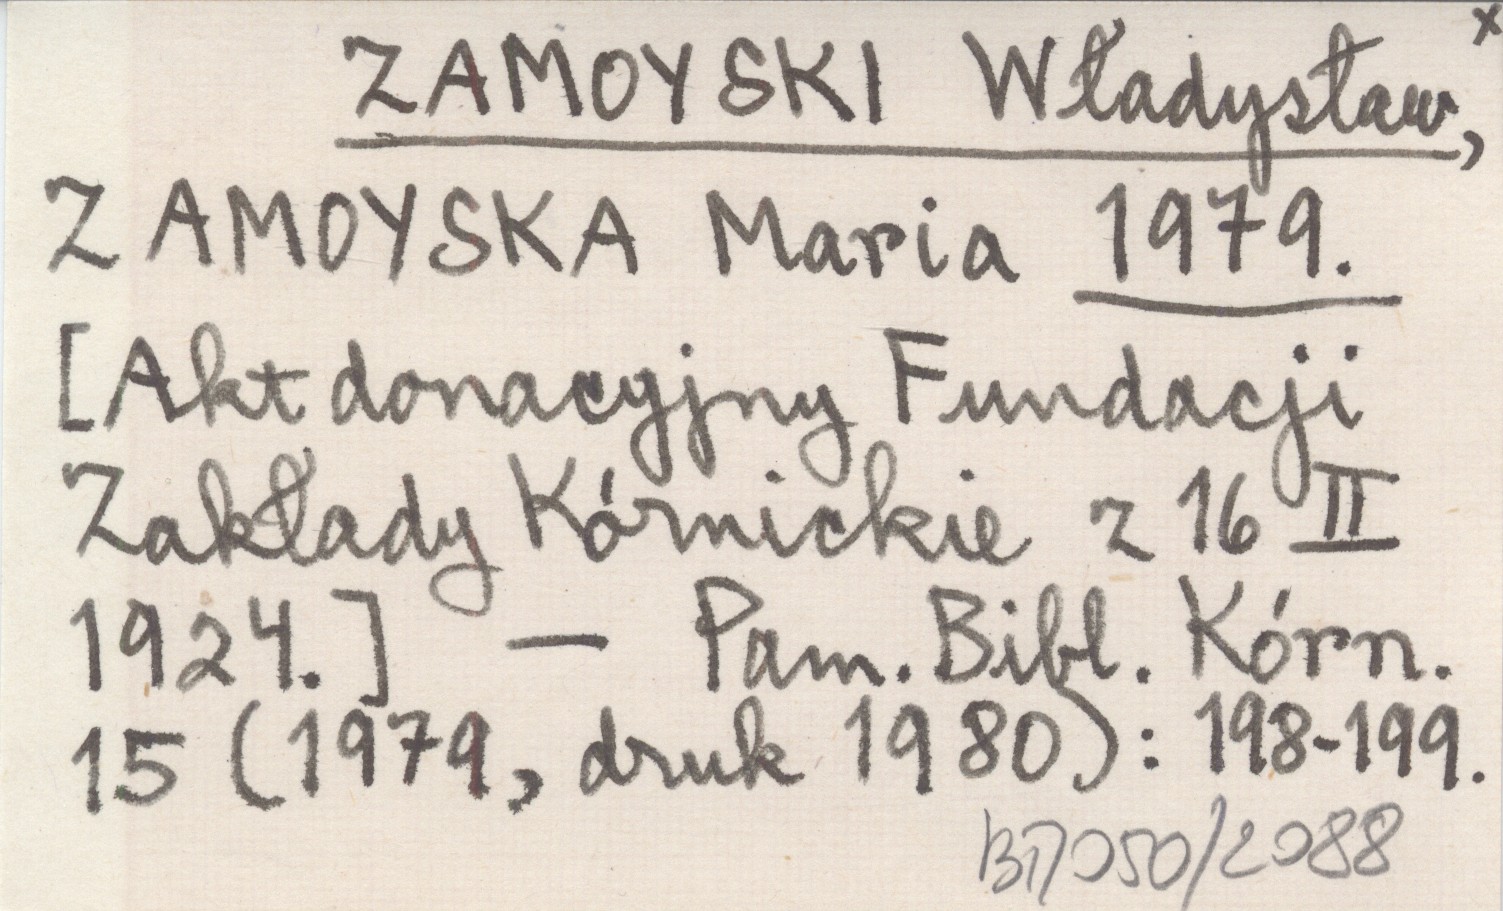 x
ZAMOYSKI Władysław,
ZAMOYSKA Maria 1979.
[Akt donacyjny Fundacji
Zakłady Kórnickie z 16 II
1924.] — Pam. Bibl. Kórn.
15 (1979, druk 1980): 198-199.